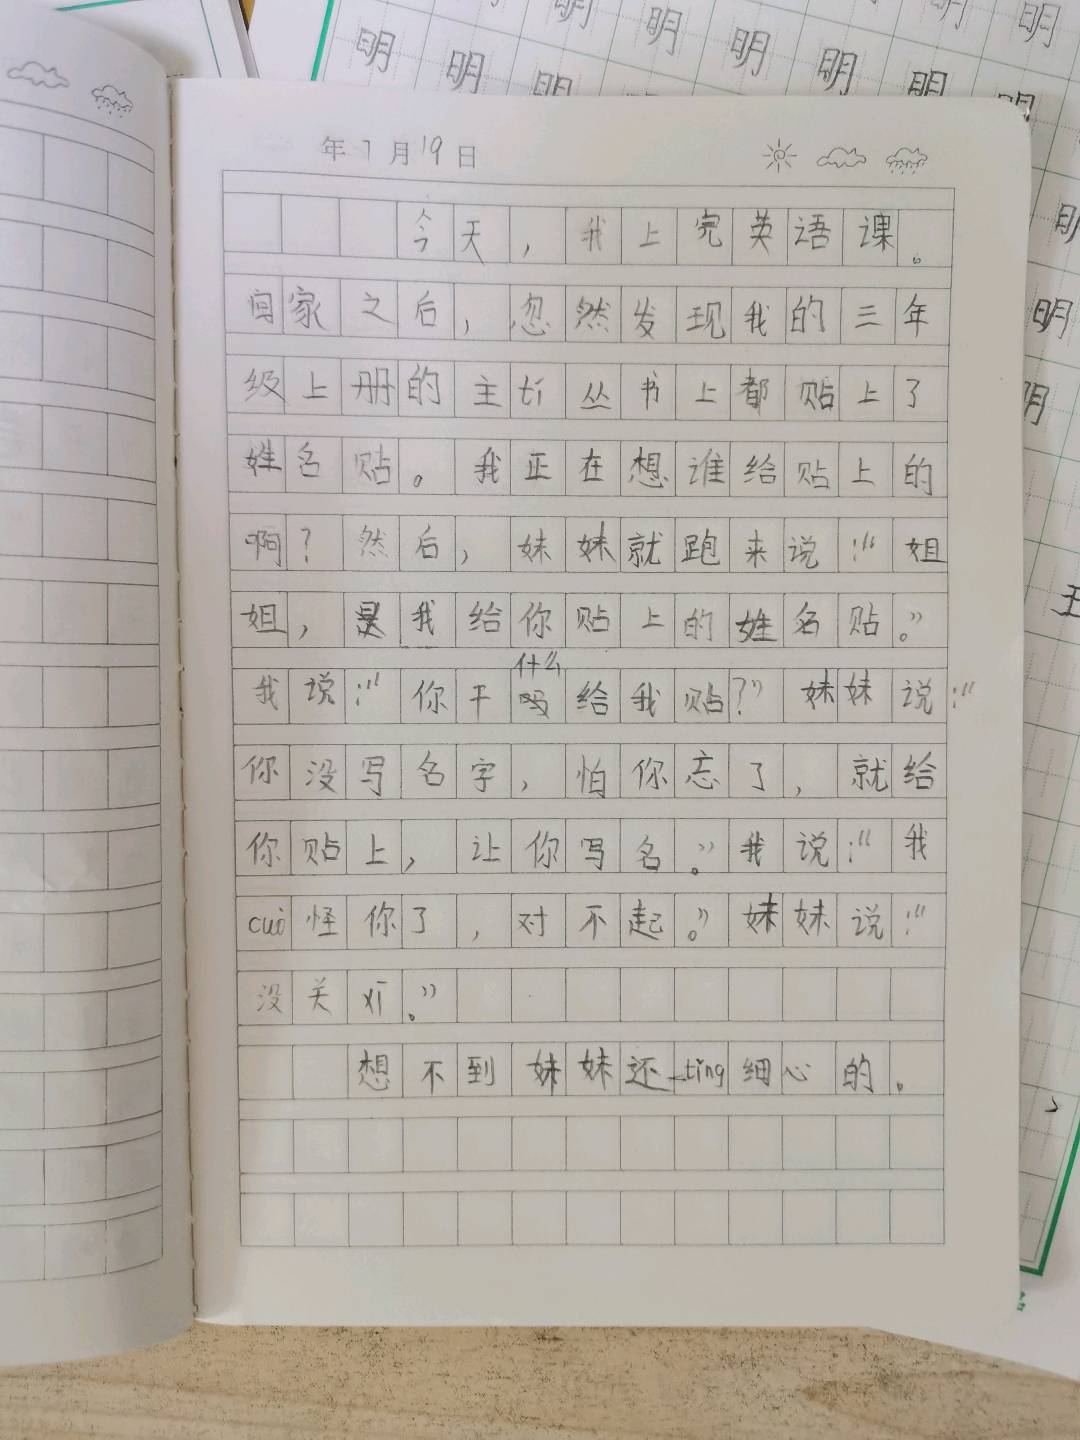 明 明 明 明 明
明 明 明 明 明 明 明
年7月19日
今天，我上完英语课。
回家之后，忽然发现我的三年
级上册的主tí丛书上都贴上了
姓名贴。我正在想谁给贴上的
啊？然后，妹妹就跑来说：“姐
姐，是我给你贴上的姓名贴。”
我说：“你干什么给我贴？”妹妹说：“
你没写名字，怕你忘了，就给
你贴上，让你写名。”我说：“我
cuò怪你了，对不起。”妹妹说：“
没关xì。”
想不到妹妹还tǐng细心的。
明
明
明
王